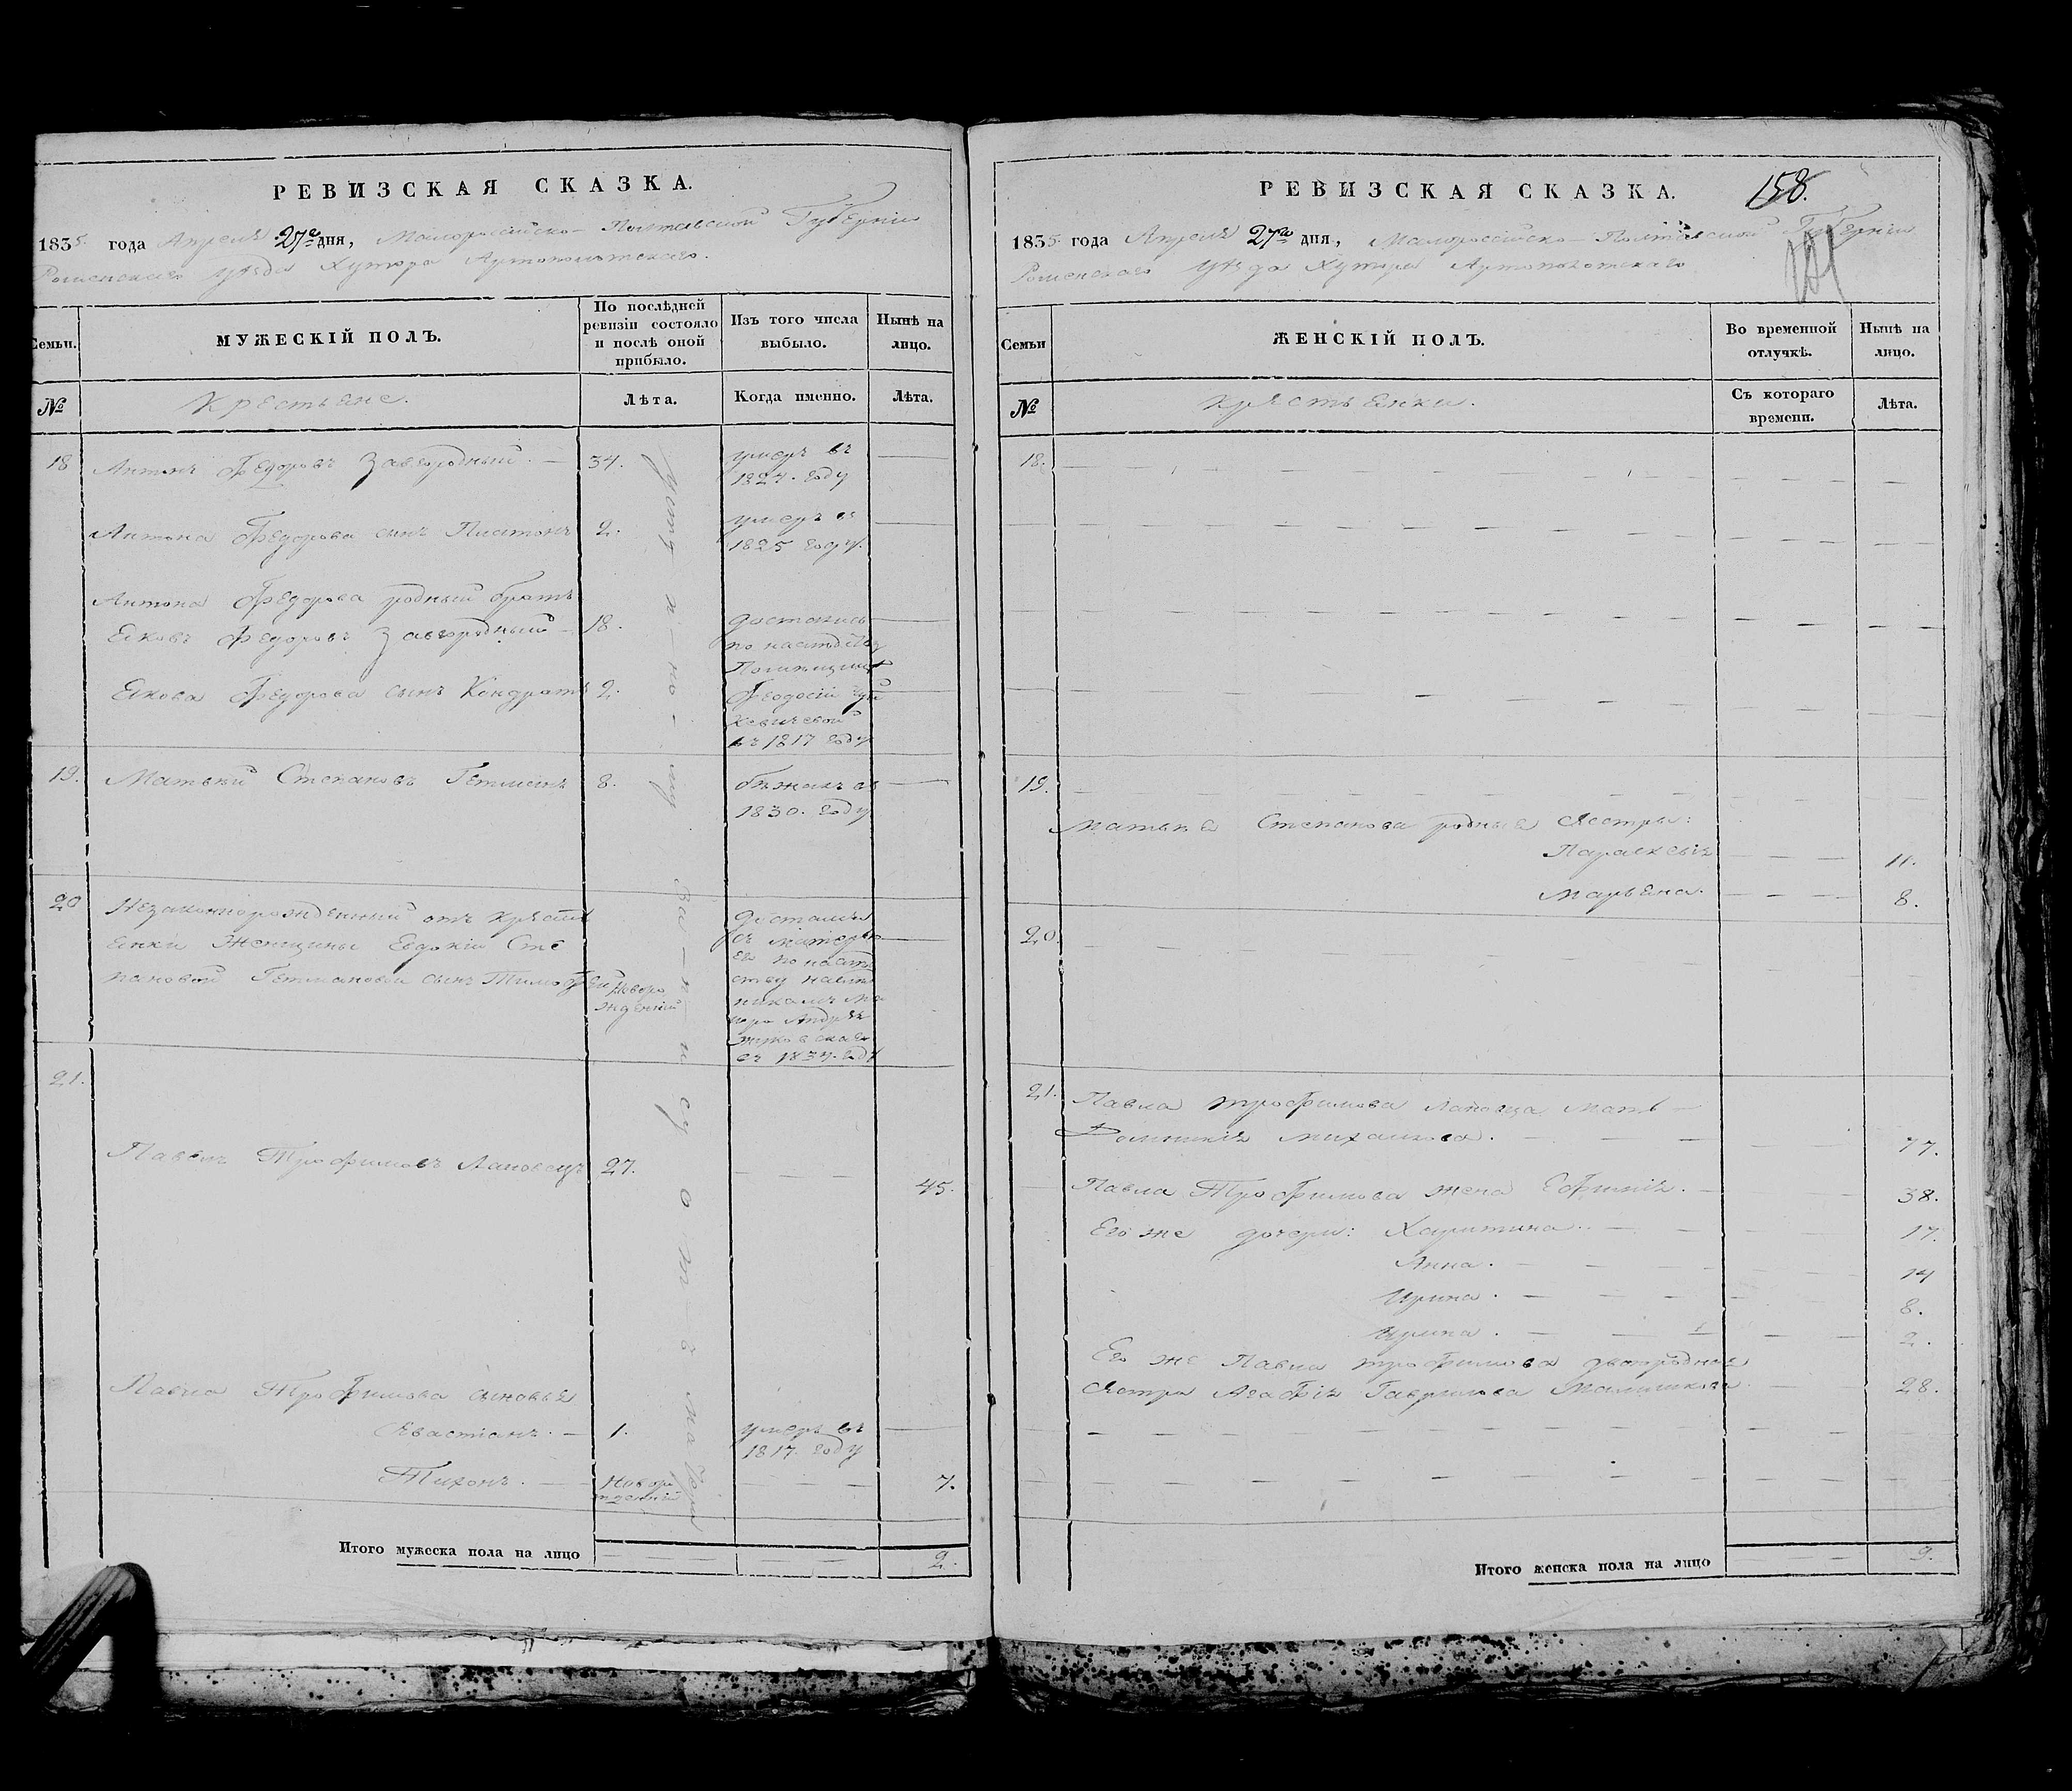 РЕВИЗСКАЯ СКАЗКА.
1835 года Апреля 27го дня, Малороссійско-Полтавской Губерніи
Роменскаго уѣзда Хутора Артополотскаго.
Семьи.
МУЖЕСКІЙ ПОЛЪ.
По послѣдней
ревизіи состояло
и послѣ оной
прибыло.
Изъ того числа
выбыло.
Нынѣ на
лицо.
№
Крестьяне.
Лѣта.
Когда именно.
Лѣта.
18 Антонъ Федоровъ Завгородный. — 34. умеръ въ —
1824. году
Антона Федорова сынъ Платонъ 2. умеръ въ —
1825 году.
Антона Федорова родный братъ
Яковъ Федоровъ Завгородный — 18. достались —
по наслѣдству
Помѣщицѣ
Якова Федорова сынъ Кондратъ 2. Феодосіи
въ 1817 году
19. Матвѣй Степановъ Гетманъ 8. бѣжалъ въ —
1830. году
20 Незаконорожденный отъ крестьянки
женщины Евдокіи Сте
пановой Гетмановой сынъ Тимофей Новоро
жденній
достался
съ матерью
его по наслѣ
ству
Андрея
въ 1834. году
21.
Павелъ Трофимовъ Лановецъ 27. — — 45.
Павла Трофимова сыновья
Севастіанъ. — 1. умеръ въ —
1817. году
Тихонъ. — Новоро — — — 7.
жденній
Итого мужеска пола на лицо 2.
РЕВИЗСКАЯ СКАЗКА.
158.
1835 года Апреля 27го дня, Малороссійско-Полтавской Губерніи
Роменскаго уѣзда Хутора Артополотскаго
Семьи
ЖЕНСКІЙ ПОЛЪ.
Во временной
отлучкѣ.
Нынѣ на
лицо.
№
крестьянки.
Съ котораго
времени.
Лѣта.
18.
19.
Матвѣя Степанова родные сестры:
Параскевія — — — 11.
Марьяна. — — — 8.
20.
21. Павла Трофимова Лановца мать —
Домникія Михайлова. — — — 77.
Павла Трофимова жена Ефимія. — 38.
Его же дочери: Харитина. — 17.
Анна. — 14
Ирина. — 8.
Ирина. — 2.
Его же Павла Трофимова двоюродная
сестра Агафія Гаврилова — 28.
Итого женска пола на лицо 9.